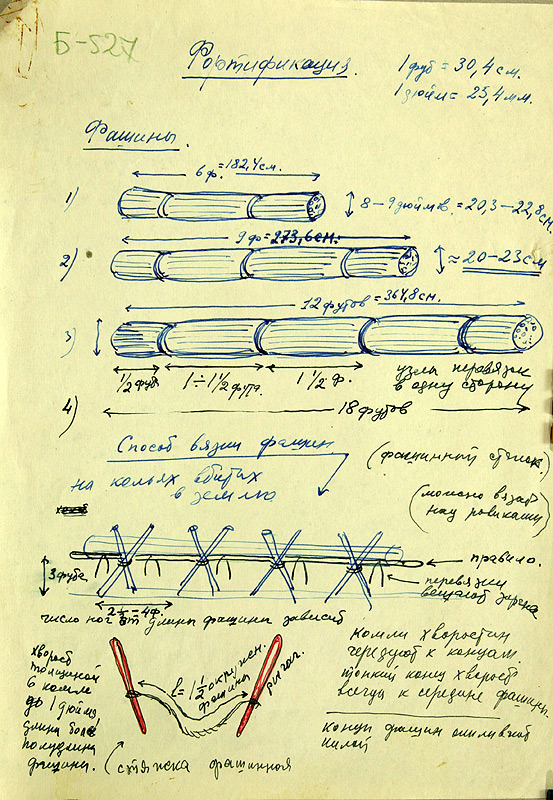 Б-527
Фортификация.
1 фут = 30,4 см.
1 дюйм = 25,4 мм.
Фашины.
6 ф. = 182,4 см.
1)
8 – 9 дюймов = 20,3 – 22,8 см.
9 ф = 273,6 см.
2)
≈ 20-23 см
12 футов = 364,8 см.
3)
1/2 фут
1 ÷ 1 1/2 фута.
1 1/2 ф.
узлы перевязок
в одну сторону
4)
18 футов
Способ вязки фашин
на кольях вбитых
в землю
(фашинный станок)
(можно вязать
над ровиками)
правило.
3 фута
перевязки
2 1/2 – 4 ф.
число ног от длины фашины зависит
хворост
толщиной
в комле
до 1 дюйма
длина более
полудлины
фашины.
l = 1 1/2 окружн.
фашины
рычаг.
стяжка фашинная
комли хворостин
чередуют к концам.
тонкий конец хворост.
всегда к середине фашины.
концы фашин опиливают
пилой